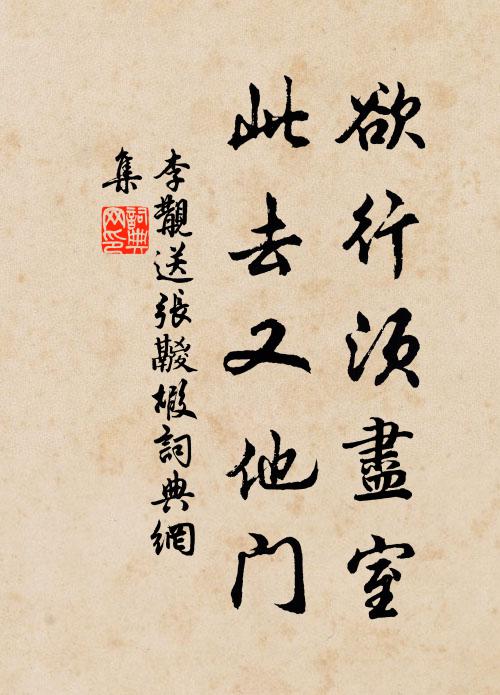 欲行須盡室
此去又他門
李覯送張詞典網
集
詞典网印